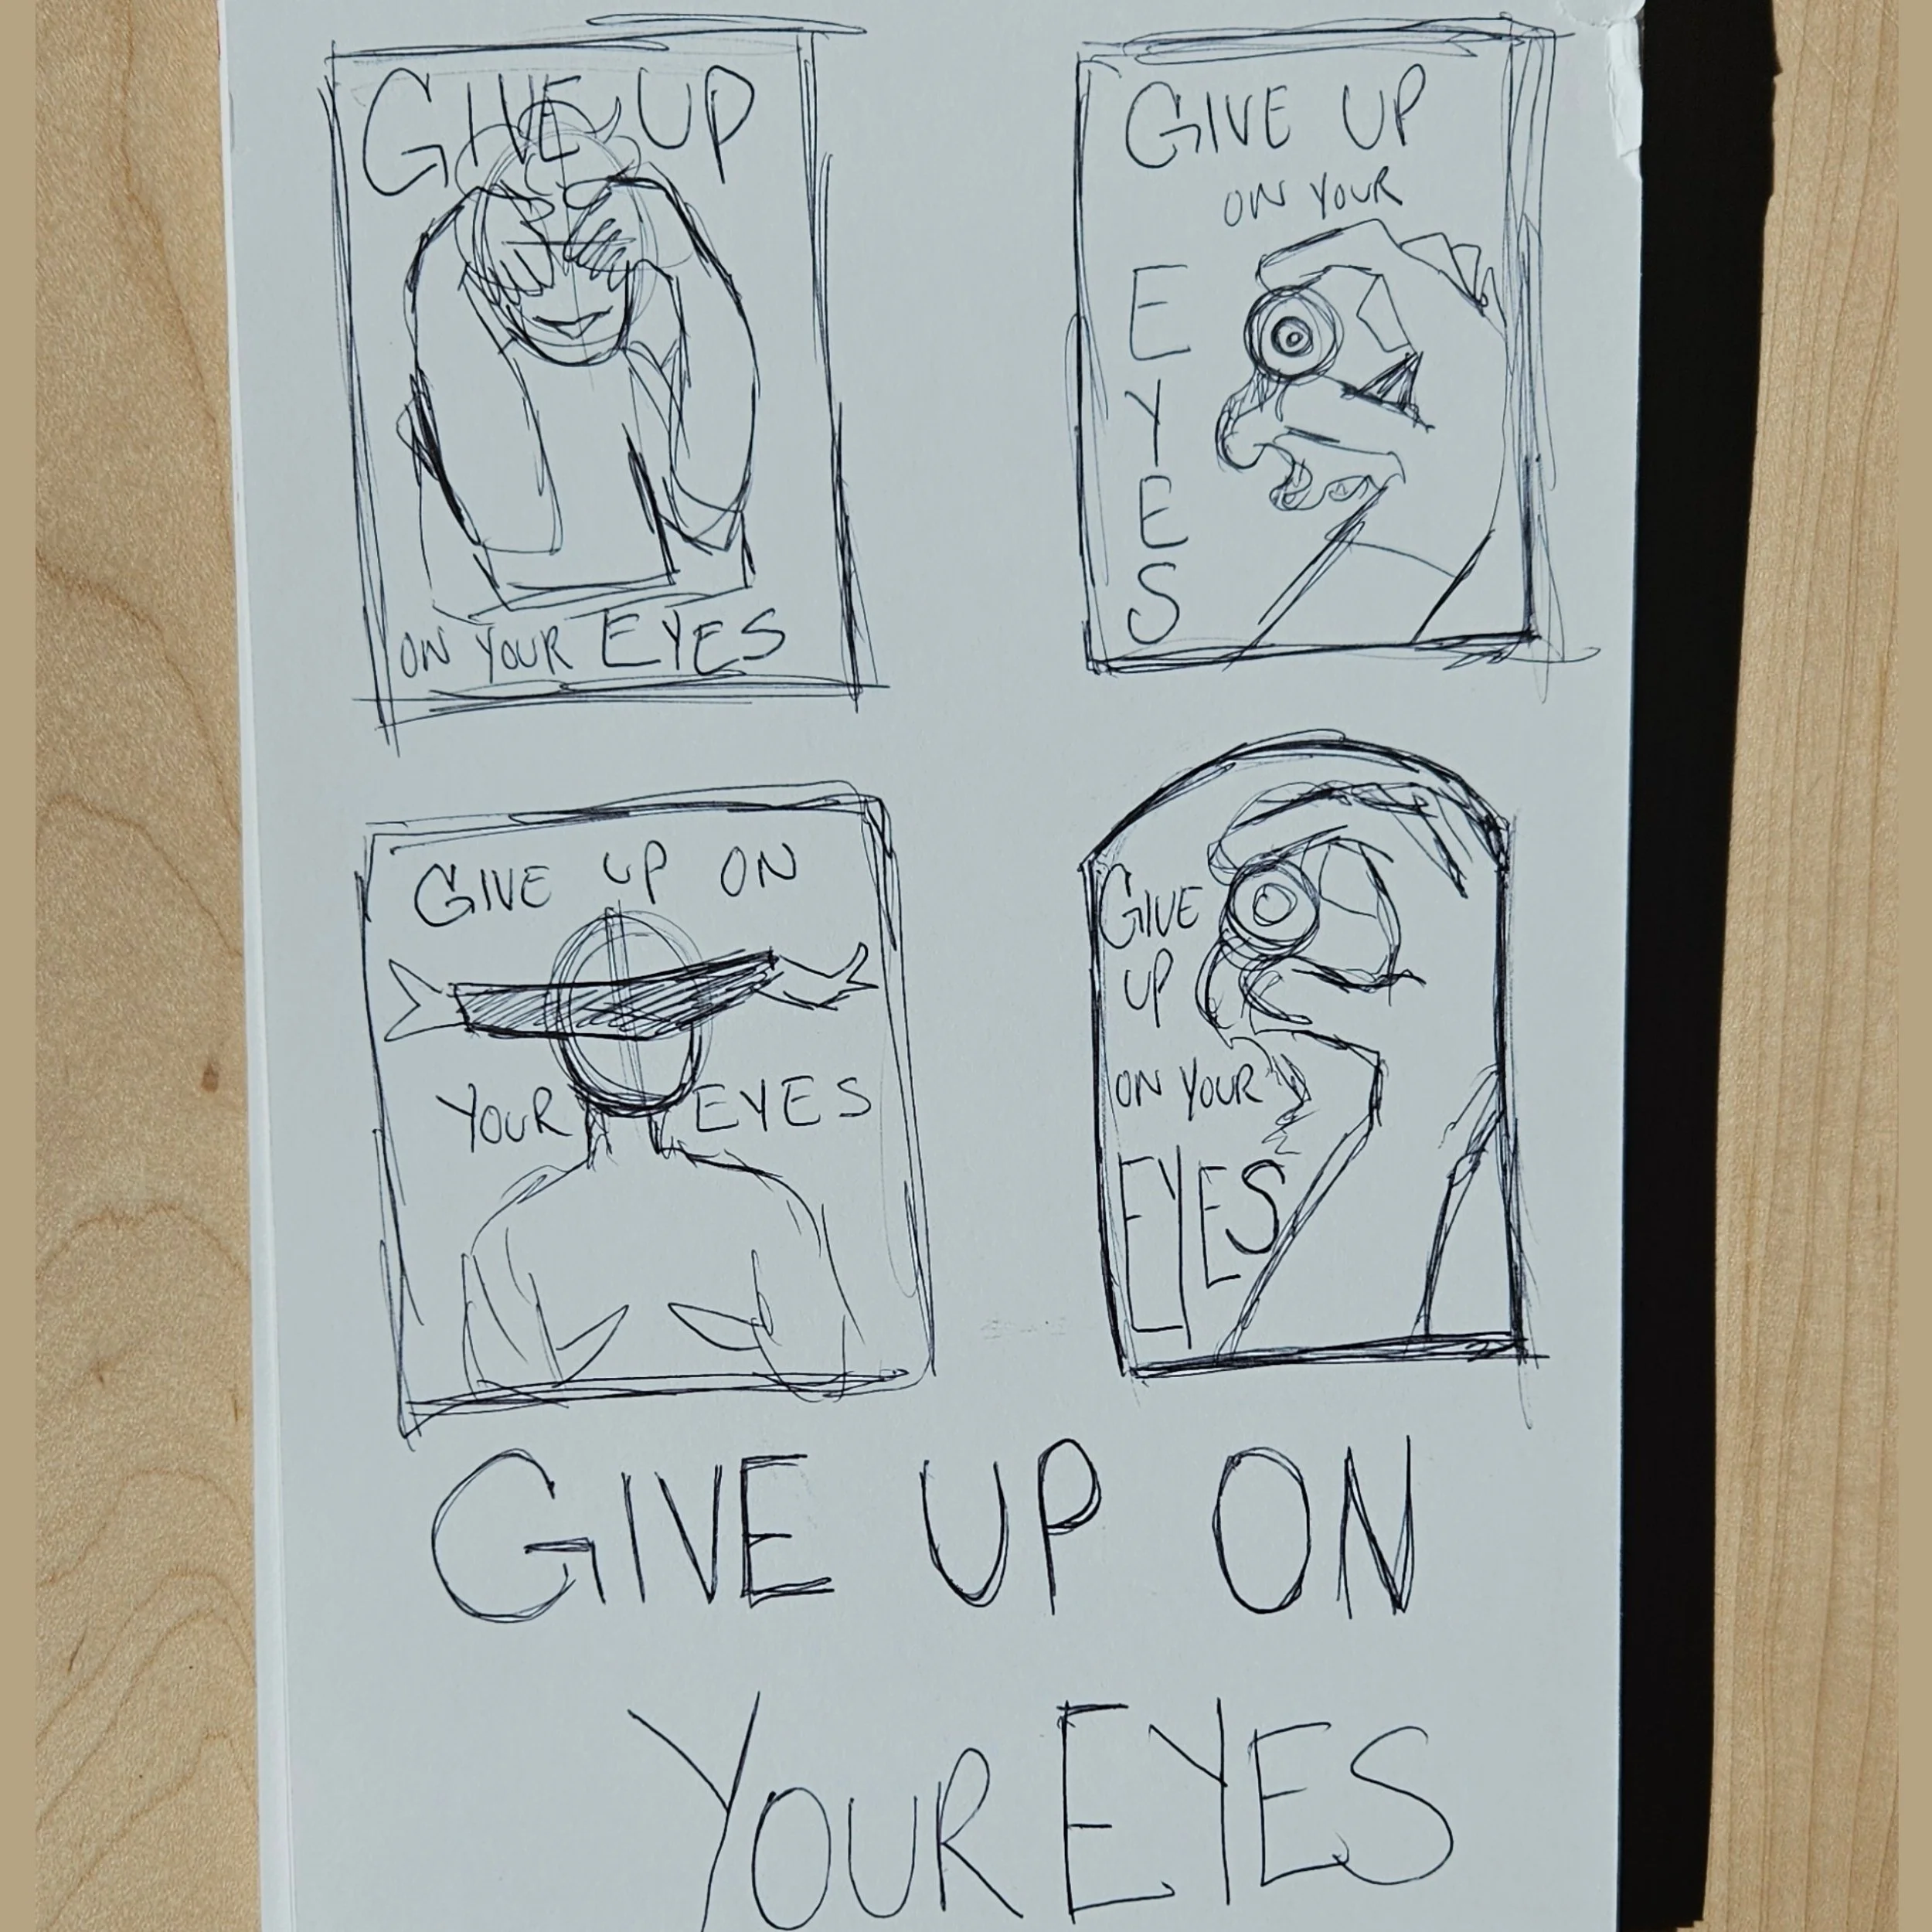 GIVE UP
ON YOUR EYES
GIVE UP
ON YOUR
EYES
GIVE UP ON
YOUR EYES
GIVE
UP
ON YOUR
EYES
GIVE UP ON
YOUR EYES